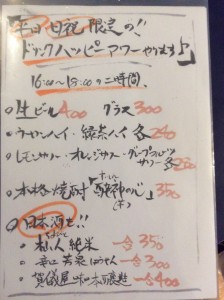 平日 日祝 限定の!!
ドリンクハッピーアワーやります♪
16:00〜18:00の二時間。
○生ビール400 グラス300
○ウーロンハイ・緑茶ハイ 各280
○レモンサワー・オレンジサワー・グレープフルーツサワー 各280
○本格焼酎「酔神の心」350
(芋)
○日本酒も!!
純米 一合350
辛口 芳泉 ほうせん 一合300
賀儀屋 味口本醸造 一合400